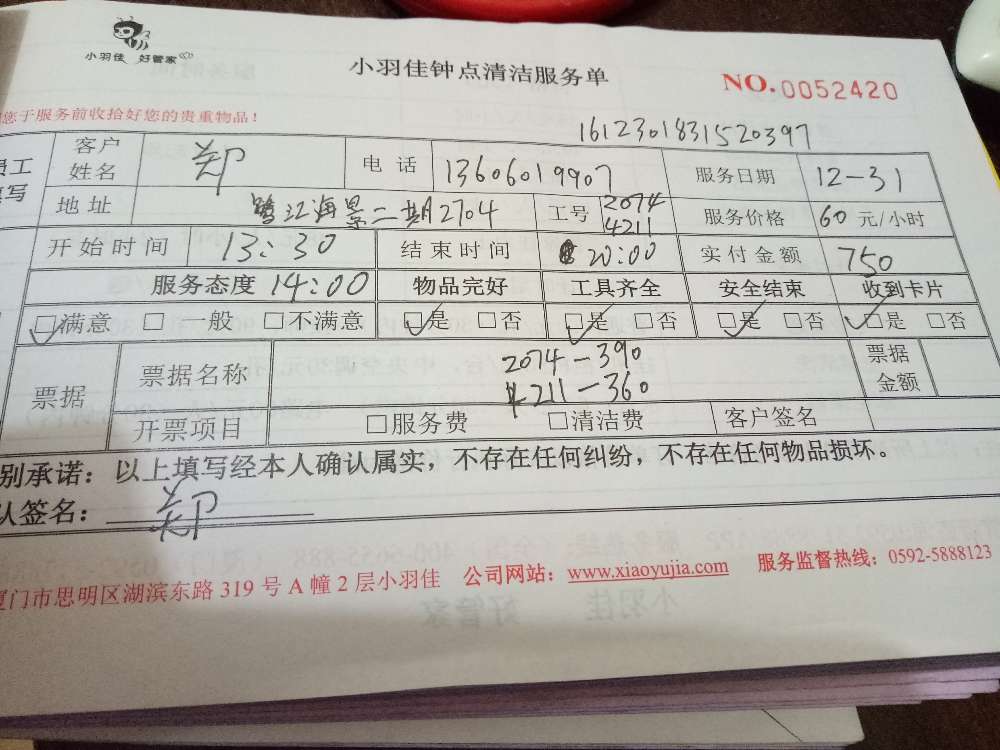 小羽佳 好管家
小羽佳钟点清洁服务单
NO.0052420
您于服务前收拾好您的贵重物品！
1612301831520397
员工填写
客户姓名 郑 电话 13606019907 服务日期 12-31
地址 鹭江海景二期2704 工号 2074 4211 服务价格 60 元/小时
开始时间 13:30 结束时间 20:00 实付金额 750
服务态度 14:00 物品完好 工具齐全 安全结束 收到卡片
☑满意 □一般 □不满意 ☑是 □否 ☑是 □否 ☑是 □否 ☑是 □否
票据 票据名称 2074-390 票据金额
4211-360
开票项目 □服务费 □清洁费 客户签名
别承诺：以上填写经本人确认属实，不存在任何纠纷，不存在任何物品损坏。
认签名：郑
厦门市思明区湖滨东路 319 号 A 幢 2 层小羽佳 公司网站：www.xiaoyujia.com 服务监督热线：0592-5888123